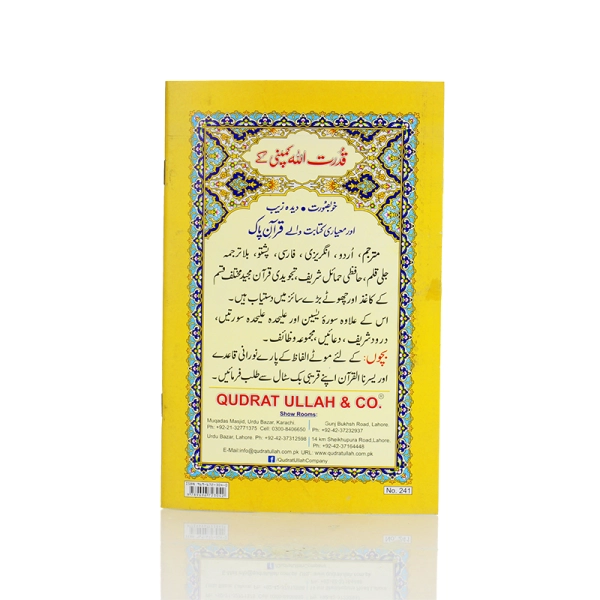 قدرت اللہ کمپنی کے
خوبصورت • دیدہ زیب
اور معیاری کتابت والے قرآن پاک
مترجم، اُردو، انگریزی، فارسی، پشتو، بلا ترجمہ
جلی قلم، حافظی حمائل شریف، تجویدی قرآن مجید مختلف قسم
کے کاغذ اور چھوٹے بڑے سائز میں دستیاب ہیں۔
اس کے علاوہ سورۃ یٰسین اور علیحدہ علیحدہ سورتیں،
درود شریف، دعائیں، مجموعہ وظائف۔
بچوں: کے لئے موٹے الفاظ کے پارے نورانی قاعدے
اور یسرنا القرآن اپنے قریبی بک سٹال سے طلب فرمائیں۔
QUDRAT ULLAH & CO.®
Show Rooms:
Muqadas Masjid, Urdu Bazar, Karachi.
Ph: +92-21-32771375 Cell: 0300-8406650
Gunj Bukhsh Road, Lahore.
Ph: +92-42-37232937
Urdu Bazar, Lahore. Ph: +92-42-37312598
14 km Sheikhupura Road, Lahore.
Ph: +92-42-37164448
E-Mail:info@qudratullah.com.pk URL: www.qudratullah.com.pk
f /QudratUllahCompany
No. 241